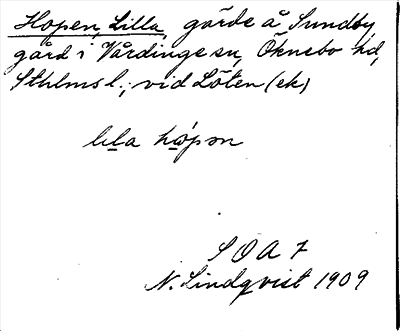 Hopen, Lilla, gärde å Sundby
gård i Vårdinge sn, Öknebo hd,
Sthlms l.; vid Löten (ek)
lila hópən
S O A 7
N. Lindqvist 1909